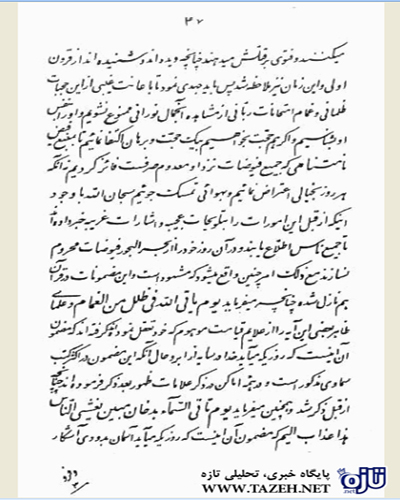 ۴۷
میکنند و فتوی بر قتلش میدهند چنانچه دیده‌اند و شنیده‌اند از قرون
اولی و این زمان نیز ملاحظه شد پس باید جهدی نمود تا باعانت غیبی از این حجبات
ظلمانی و غمام امتحانات ربانی از مشاهده آن جمال نورانی ممنوع نشویم و او را بنفس
او بشناسیم و اگر هم حجت بخواهیم بیک حجت و برهان اکتفا نمائیم تا بمنبع فیض
نامتناهی که جمیع فیوضات نزد او معدوم صرفست فائز گردیم نه آنکه
هر روز بخیالی اعتراض نمائیم و بهوائی تمسک جوئیم سبحان الله با وجود
اینکه از قبل این امورات را بتلویحات عجیبه و اشارات غریبه خبر داده‌اند
تا جمیع ناس اطلاع یابند و در آن روز خود را از بحر البحور فیوضات محروم
نسازند مع ذلک امر چنین واقع میشود که مشهود است و این مضمونات در قرآن
هم نازل شده چنانچه میفرماید یوم یاتی الله فی ظلل من الغمام و علمای
ظاهر بعضی این آیه را از علایم قیامت موهوم که خود تعقل نموده‌اند گرفته‌اند که مضمون
آن اینست که روزیکه میآید خدا در سایه از ابر و حال آنکه این مضمون در اکثر کتب
سماوی مذکور است و در همه اماکن در ذکر علامات ظهور بعد ذکر فرموده‌اند چنانچه
از قبل ذکر شد و همچنین میفرماید یوم تاتی السماء بدخان مبین یغشی الناس
هذا عذاب الیم که مضمون آن اینست که روزیکه میآید آسمان بدودی آشکار
تازه
پایگاه خبری، تحلیلی تازه
WWW.TAZEH.NET